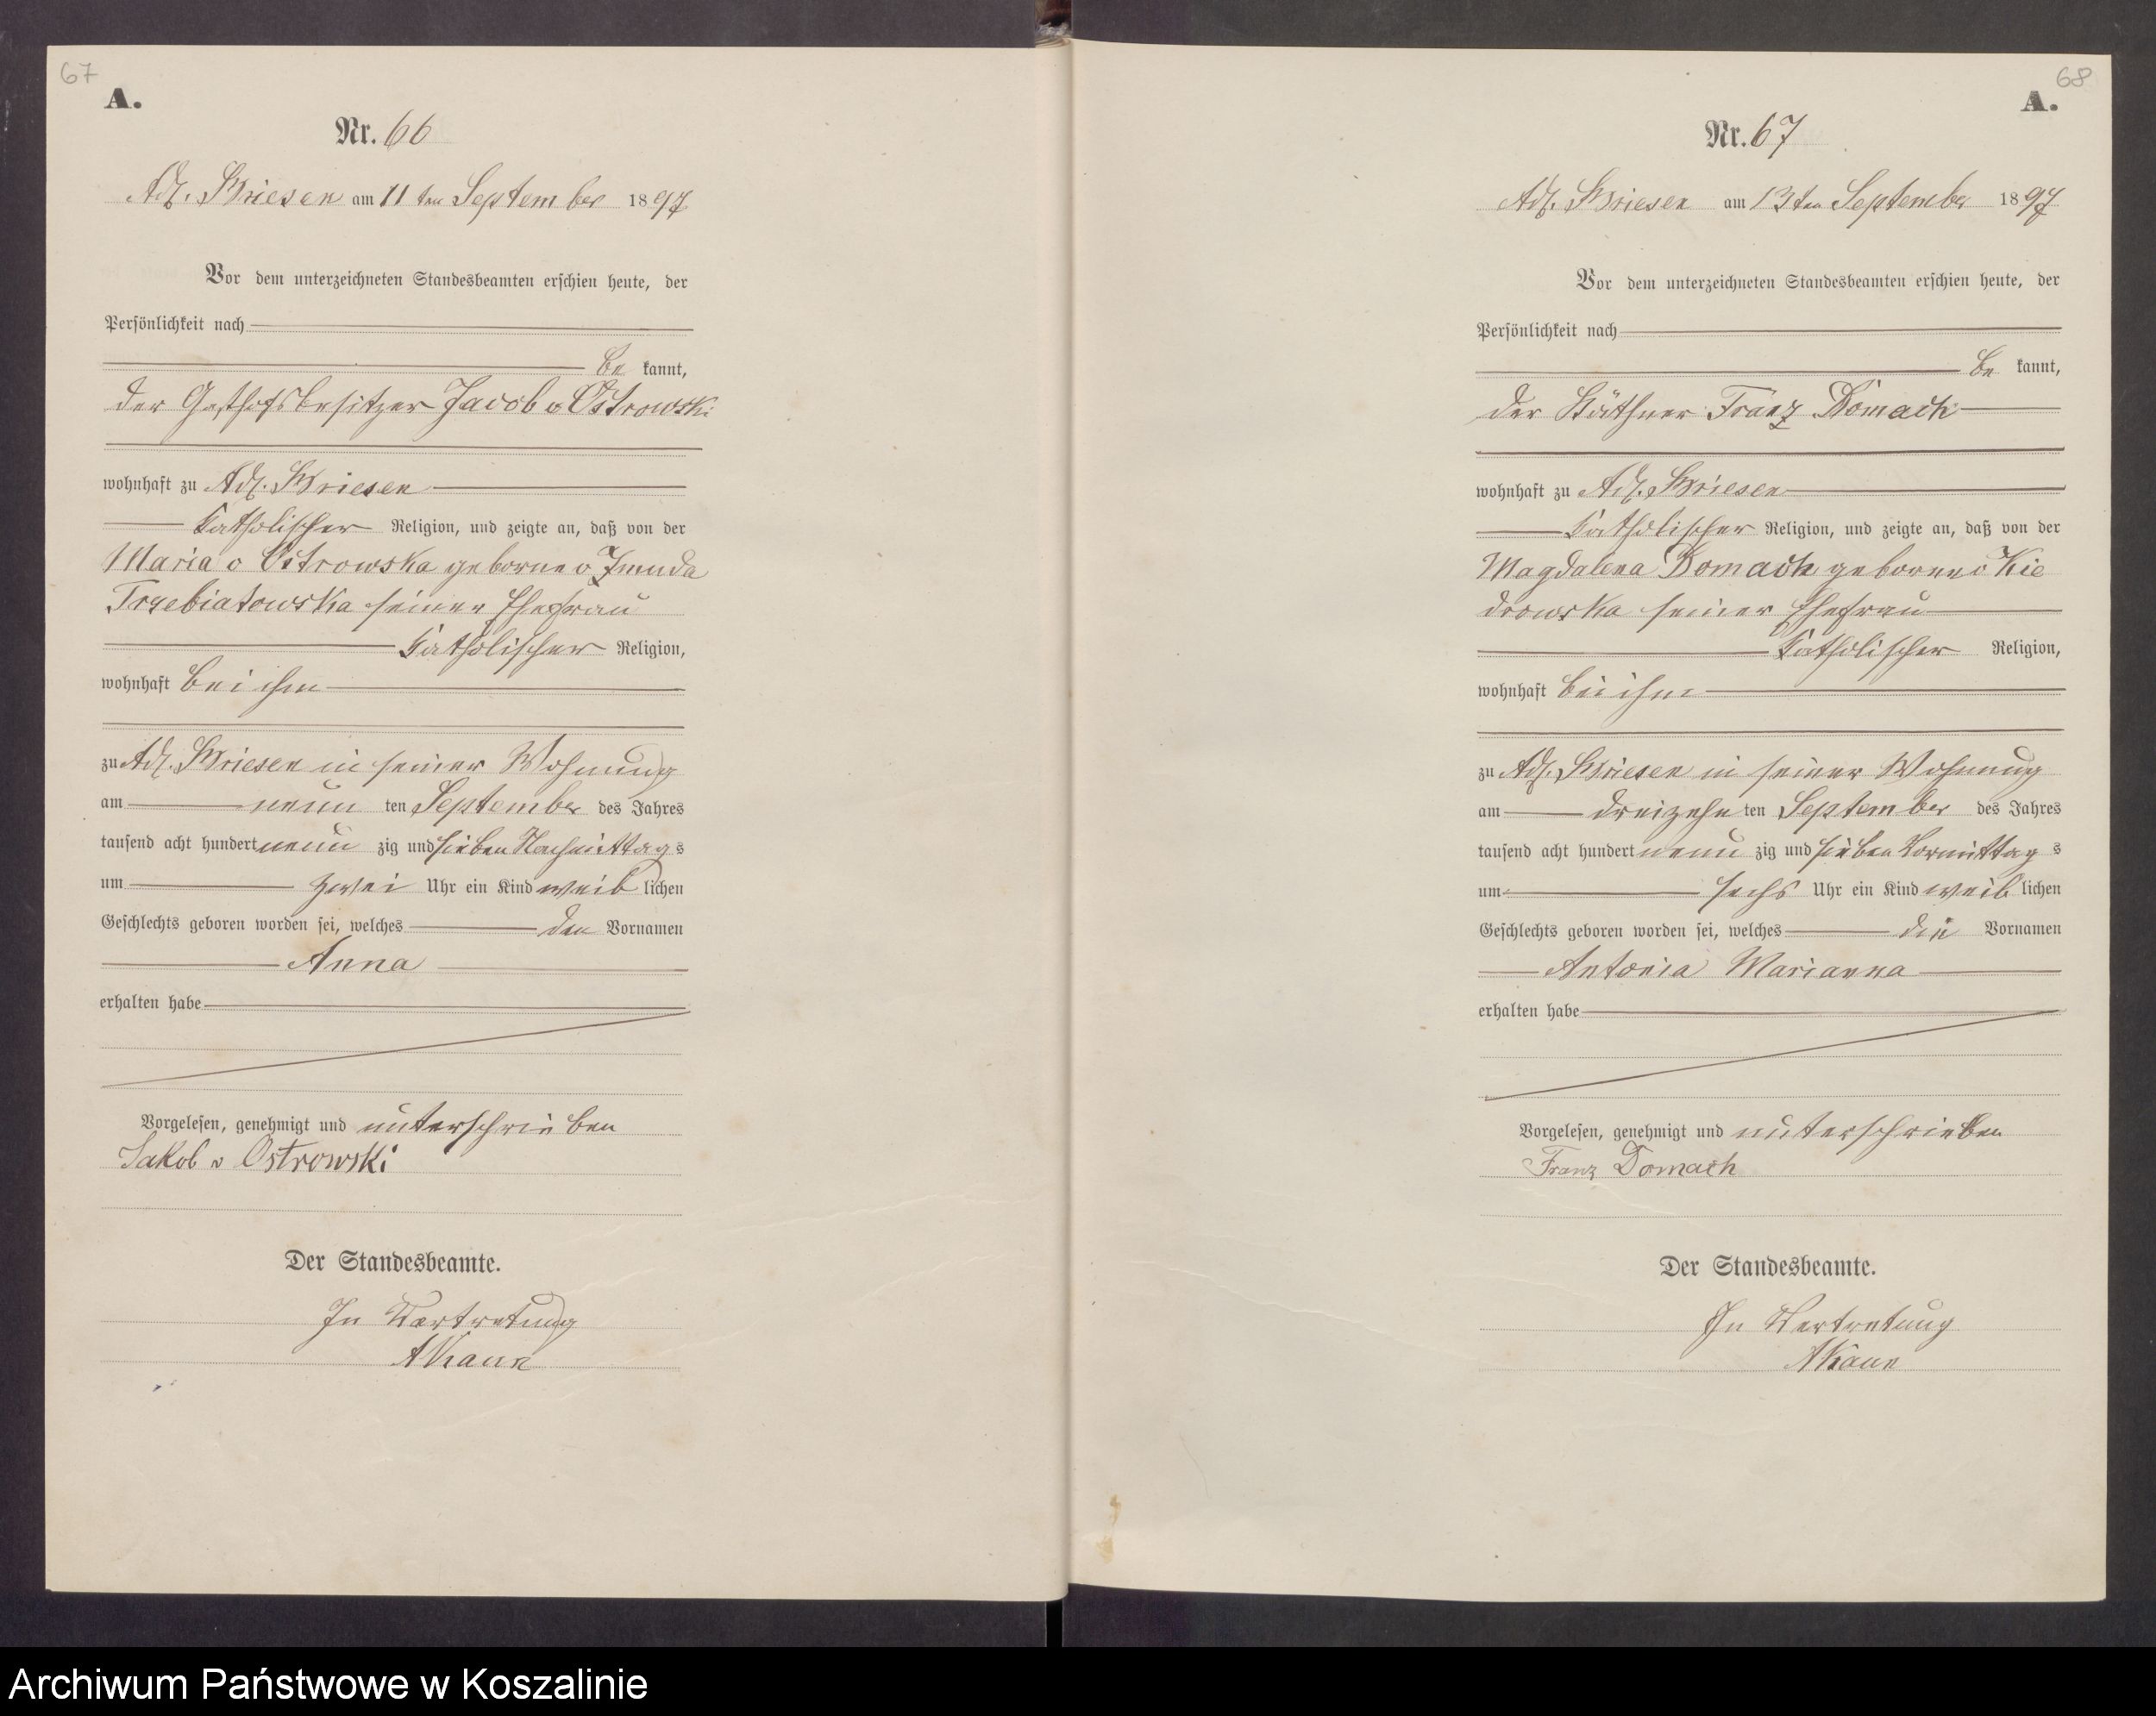 67
A.
Nr. 66
Adl. Briesen am 11 ten September 1897
Vor dem unterzeichneten Standesbeamten erschien heute, der
Persönlichkeit nach
be kannt,
der Gasthofsbesitzer Jacob v Ostrowski
wohnhaft zu Adl. Briesen
katholischer Religion, und zeigte an, daß von der
Maria v Ostrowska geborne v Zmuda
Trzebiatowska seiner Ehefrau
katholischer Religion,
wohnhaft bei ihm
zu Adl. Briesen in seiner Wohnung
am neun ten September des Jahres
tausend acht hundert neun zig und sieben Nachmittags
um zwei Uhr ein Kind weib lichen
Geschlechts geboren worden sei, welches den Vornamen
Anna
erhalten habe
Vorgelesen, genehmigt und unterschrieben
Jakob v Ostrowski
Der Standesbeamte.
In Vertretung
AKaun
68
A.
Nr. 67
Adl. Briesen am 13 ten September 1897
Vor dem unterzeichneten Standesbeamten erschien heute, der
Persönlichkeit nach
be kannt,
der Käthner Franz Domach
wohnhaft zu Adl. Briesen
katholischer Religion, und zeigte an, daß von der
Magdalena Domach geborne v Kie
drowska seiner Ehefrau
katholischer Religion,
wohnhaft bei ihm
zu Adl. Briesen in seiner Wohnung
am dreizehn ten September des Jahres
tausend acht hundert neun zig und sieben Vormittag s
um sechs Uhr ein Kind weib lichen
Geschlechts geboren worden sei, welches die Vornamen
Antonia Marianna
erhalten habe
Vorgelesen, genehmigt und unterschrieben
Franz Domach
Der Standesbeamte.
In Vertretung
AKaun
Archiwum Państwowe w Koszalinie